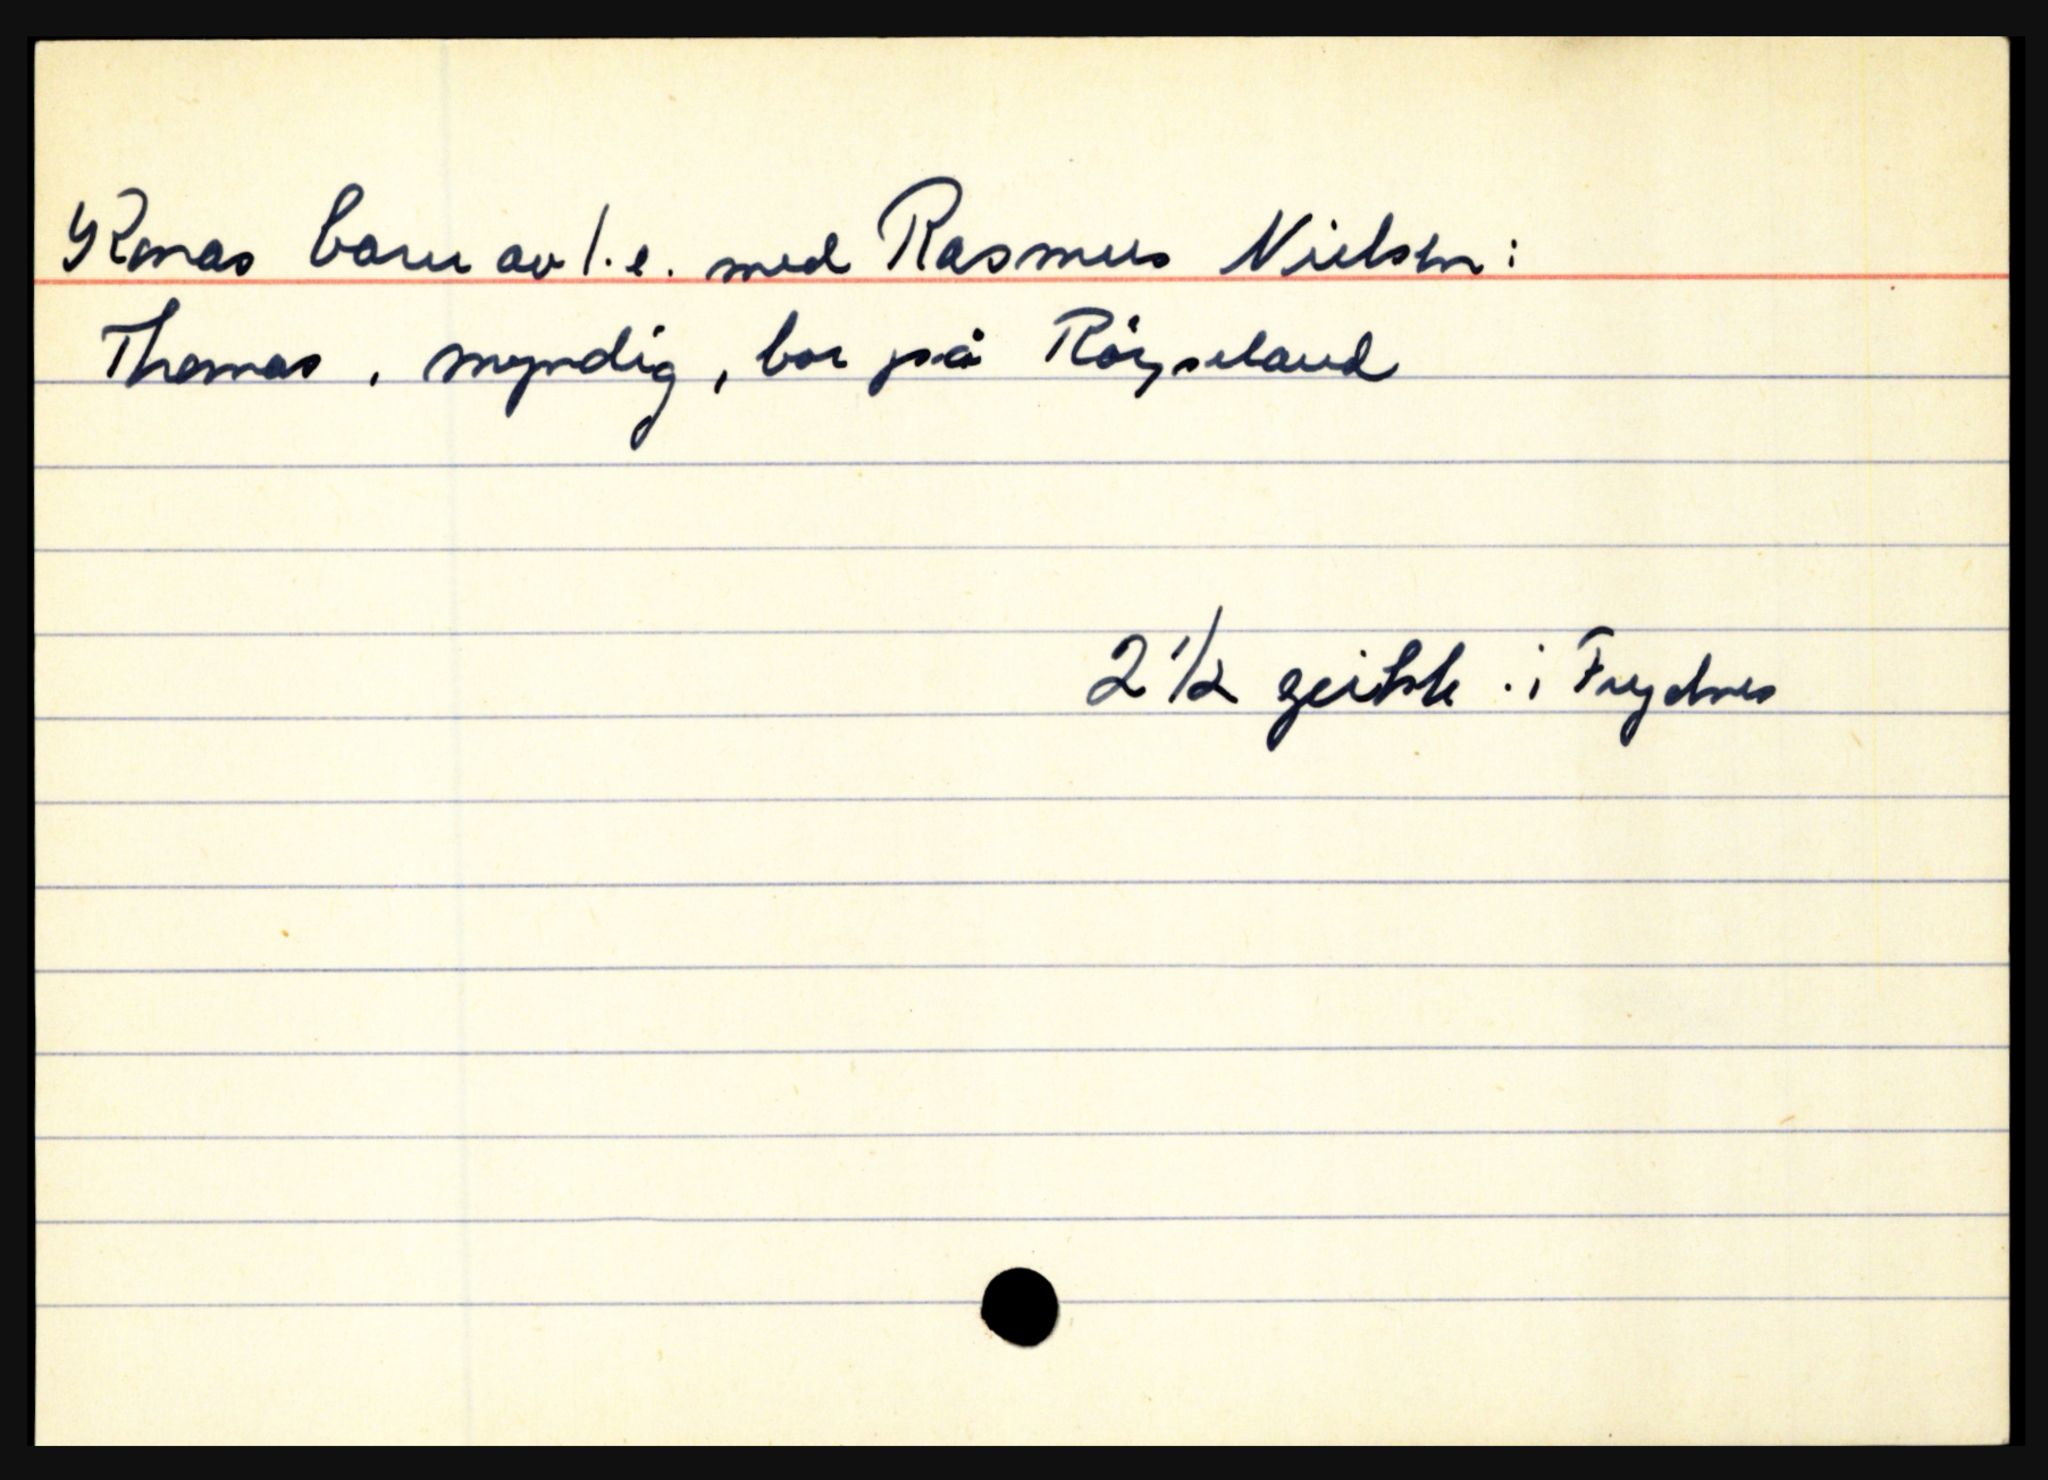 Konas barn av 1.e. med Rasmus Nielsen:
Thomas, myndig, bor på Röyseland
2 1/2 geitsk. i Frydnes